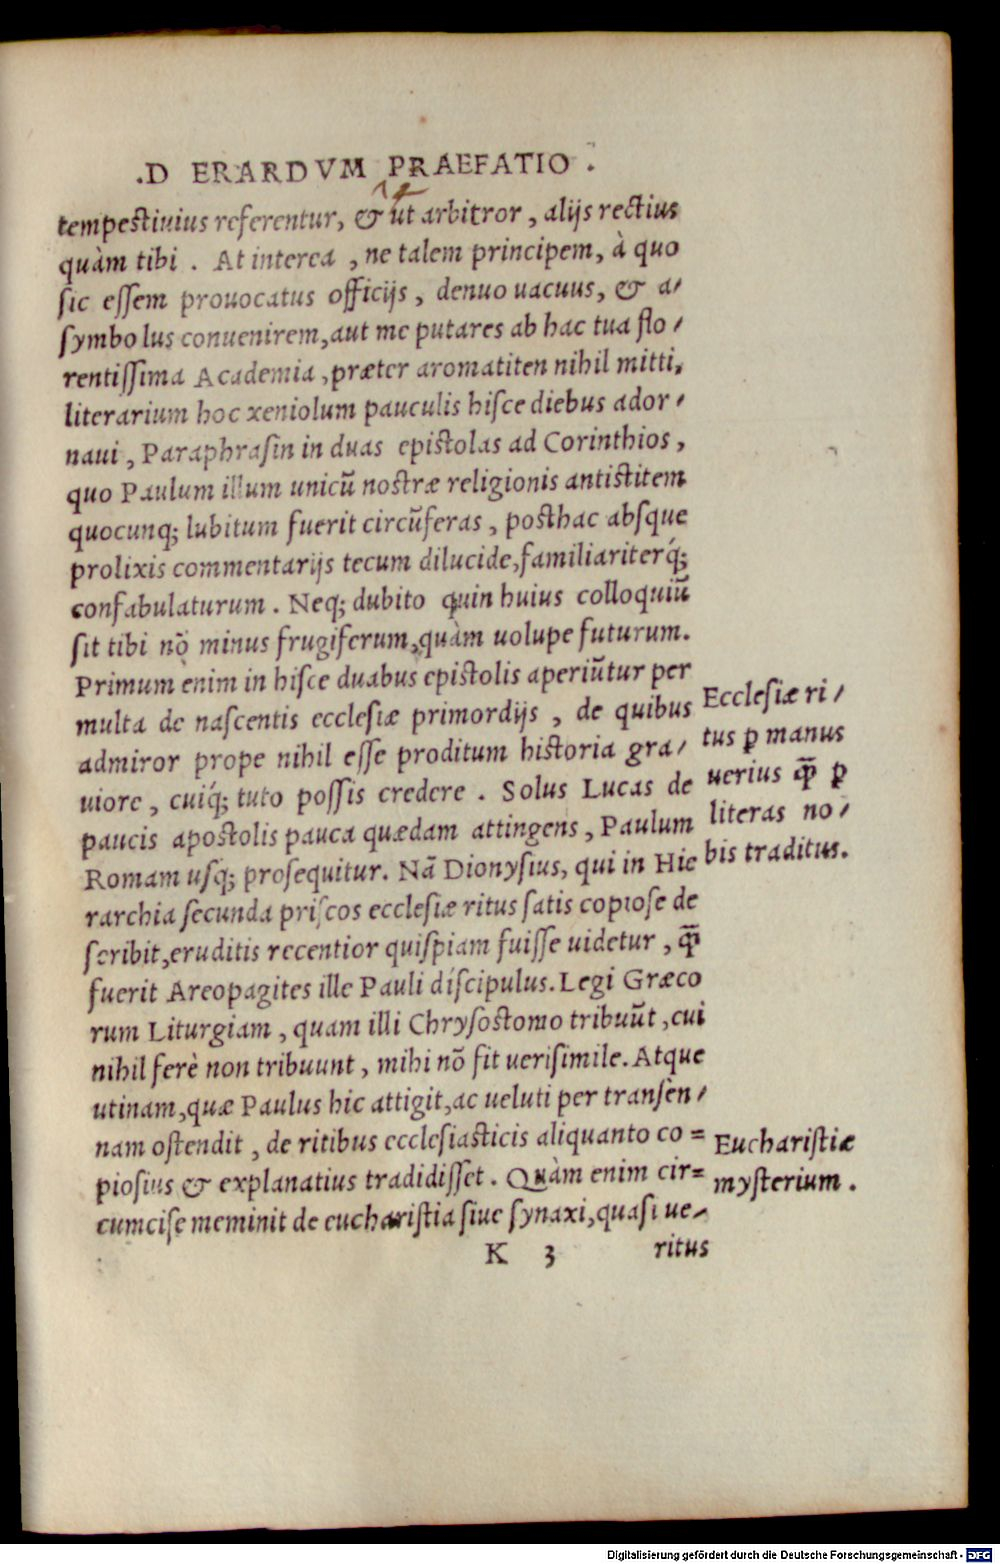 .D ERARDVM PRAEFATIO .
tempestiuius referentur, & ut arbitror, alijs rectius
quàm tibi . At interea , ne talem principem, à quo
sic essem prouocatus officijs , denuo uacuus, & a/
symbolus conuenirem, aut me putares ab hac tua flo/
rentissima Academia, præter aromatiten nihil mitti,
literarium hoc xeniolum pauculis hisce diebus ador/
naui , Paraphrasin in duas epistolas ad Corinthios ,
quo Paulum illum unicũ nostræ religionis antistitem
quocunq; lubitum fuerit circũferas , posthac absque
prolixis commentarijs tecum dilucide, familiariterq́;
confabulaturum . Neq; dubito quin huius colloquiũ
sit tibi nõ minus frugiferum, quàm uolupe futurum.
Primum enim in hisce duabus epistolis aperiũtur per
multa de nascentis ecclesiæ primordijs , de quibus
admiror prope nihil esse proditum historia gra/
uiore , cuiq́; tuto possis credere . Solus Lucas de
paucis apostolis pauca quædam attingens , Paulum
Romam usq; prosequitur. Nã Dionysius, qui in Hie
rarchia secunda priscos ecclesiæ ritus satis copiose de
scribit, eruditis recentior quispiam fuisse uidetur , q̃
fuerit Areopagites ille Pauli discipulus. Legi Græco
rum Liturgiam , quam illi Chrysostomo tribuũt , cui
nihil ferè non tribuunt , mihi nõ fit uerisimile. Atque
utinam, quæ Paulus hic attigit, ac ueluti per transèn/
nam ostendit , de ritibus ecclesiasticis aliquanto co=
piosius & explanatius tradidisset . Quàm enim cir=
cumcise meminit de eucharistia siue synaxi, quasi ue/
K 3 ritus
Ecclesiæ ri/
tus ꝑ manus
uerius q̃ ꝑ
literas no/
bis traditus.
Eucharistiæ
mysterium .
Digitalisierung gefördert durch die Deutsche Forschungsgemeinschaft - DFG